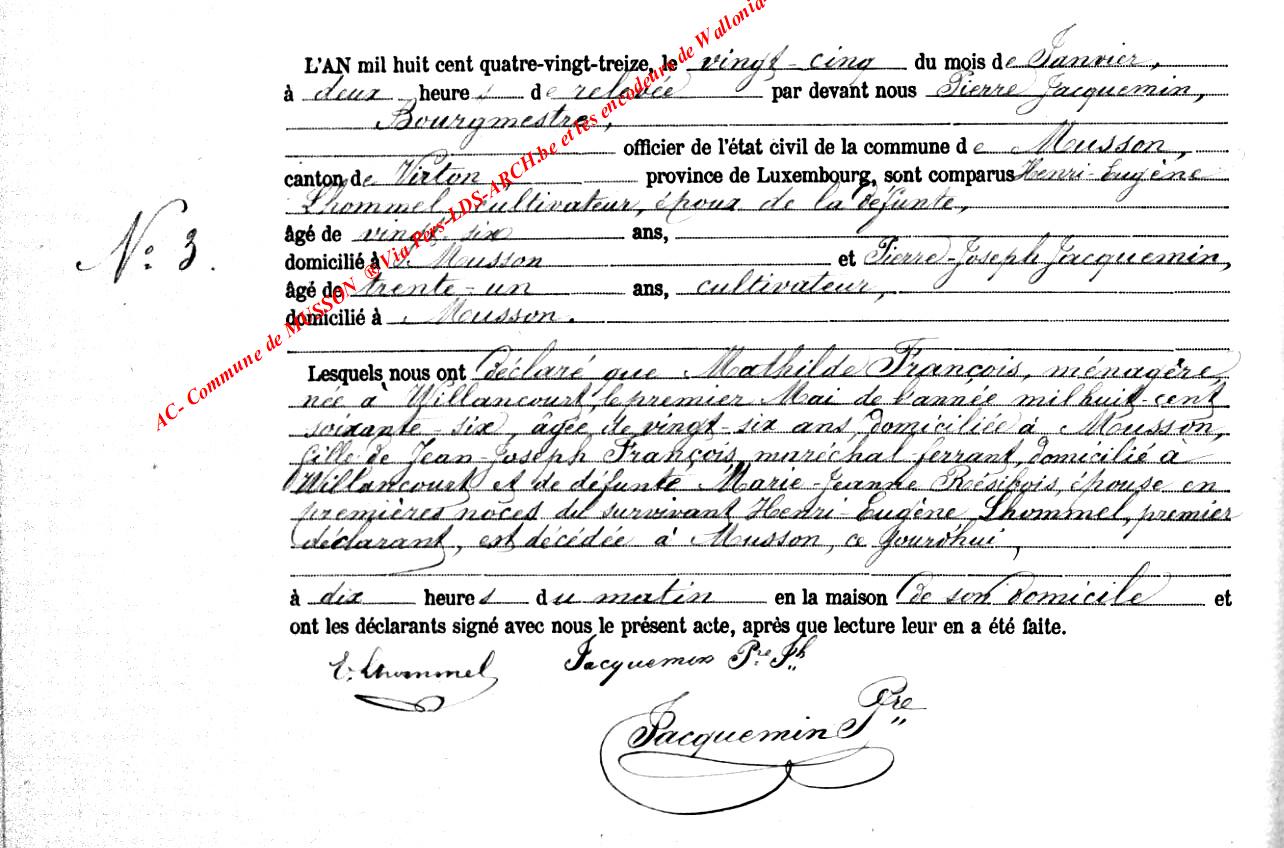 L'AN mil huit cent quatre-vingt-treize, le vingt-cinq du mois de Janvier,
à deux heures de relevée par devant nous Pierre Jacquemin,
Bourgmestre,
officier de l'état civil de la commune de Musson,
canton de Virton, province de Luxembourg, sont comparus Henri-Eugène
Lhommel, cultivateur, époux de la défunte,
âgé de vingt-six ans,
domicilié à Musson et Pierre-Joseph Jacquemin,
N° 3.
âgé de trente-un ans, cultivateur,
domicilié à Musson.
Lesquels nous ont déclaré que Mathilde François, ménagère,
née à Willancourt, le premier Mai de l'année mil huit cent
soixante-six, âgée de vingt-six ans, domiciliée à Musson,
fille de Jean-Joseph François, maréchal-ferrant, domicilié à
Willancourt et de défunte Marie-Jeanne Résibois, épouse en
premières noces du survivant Henri-Eugène Lhommel, premier
déclarant, est décédée à Musson, ce jourd'hui,
à dix heures du matin en la maison de son domicile et
ont les déclarants signé avec nous le présent acte, après que lecture leur en a été faite.
E. Lhommel Jacquemin Pre Jh
Jacquemin Pre
AC- Commune de MUSSON ® Via Pers-LDS-ARCH.be et les encodeurs de Wallonia-